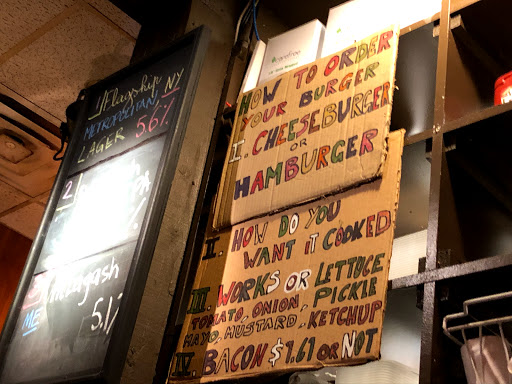 1/Flagship NY
METROPOLITAN
LAGER 5.6%
2
%
5.1%
ME
HOW TO ORDER
YOUR BURGER
I. CHEESEBURGER
OR
HAMBURGER
I. HOW DO YOU
WANT IT COOKED
III. WORKS OR LETTUCE
TOMATO, ONION, PICKLE
MAYO, MUSTARD, KETCHUP
IV. BACON $1.61 OR NOT